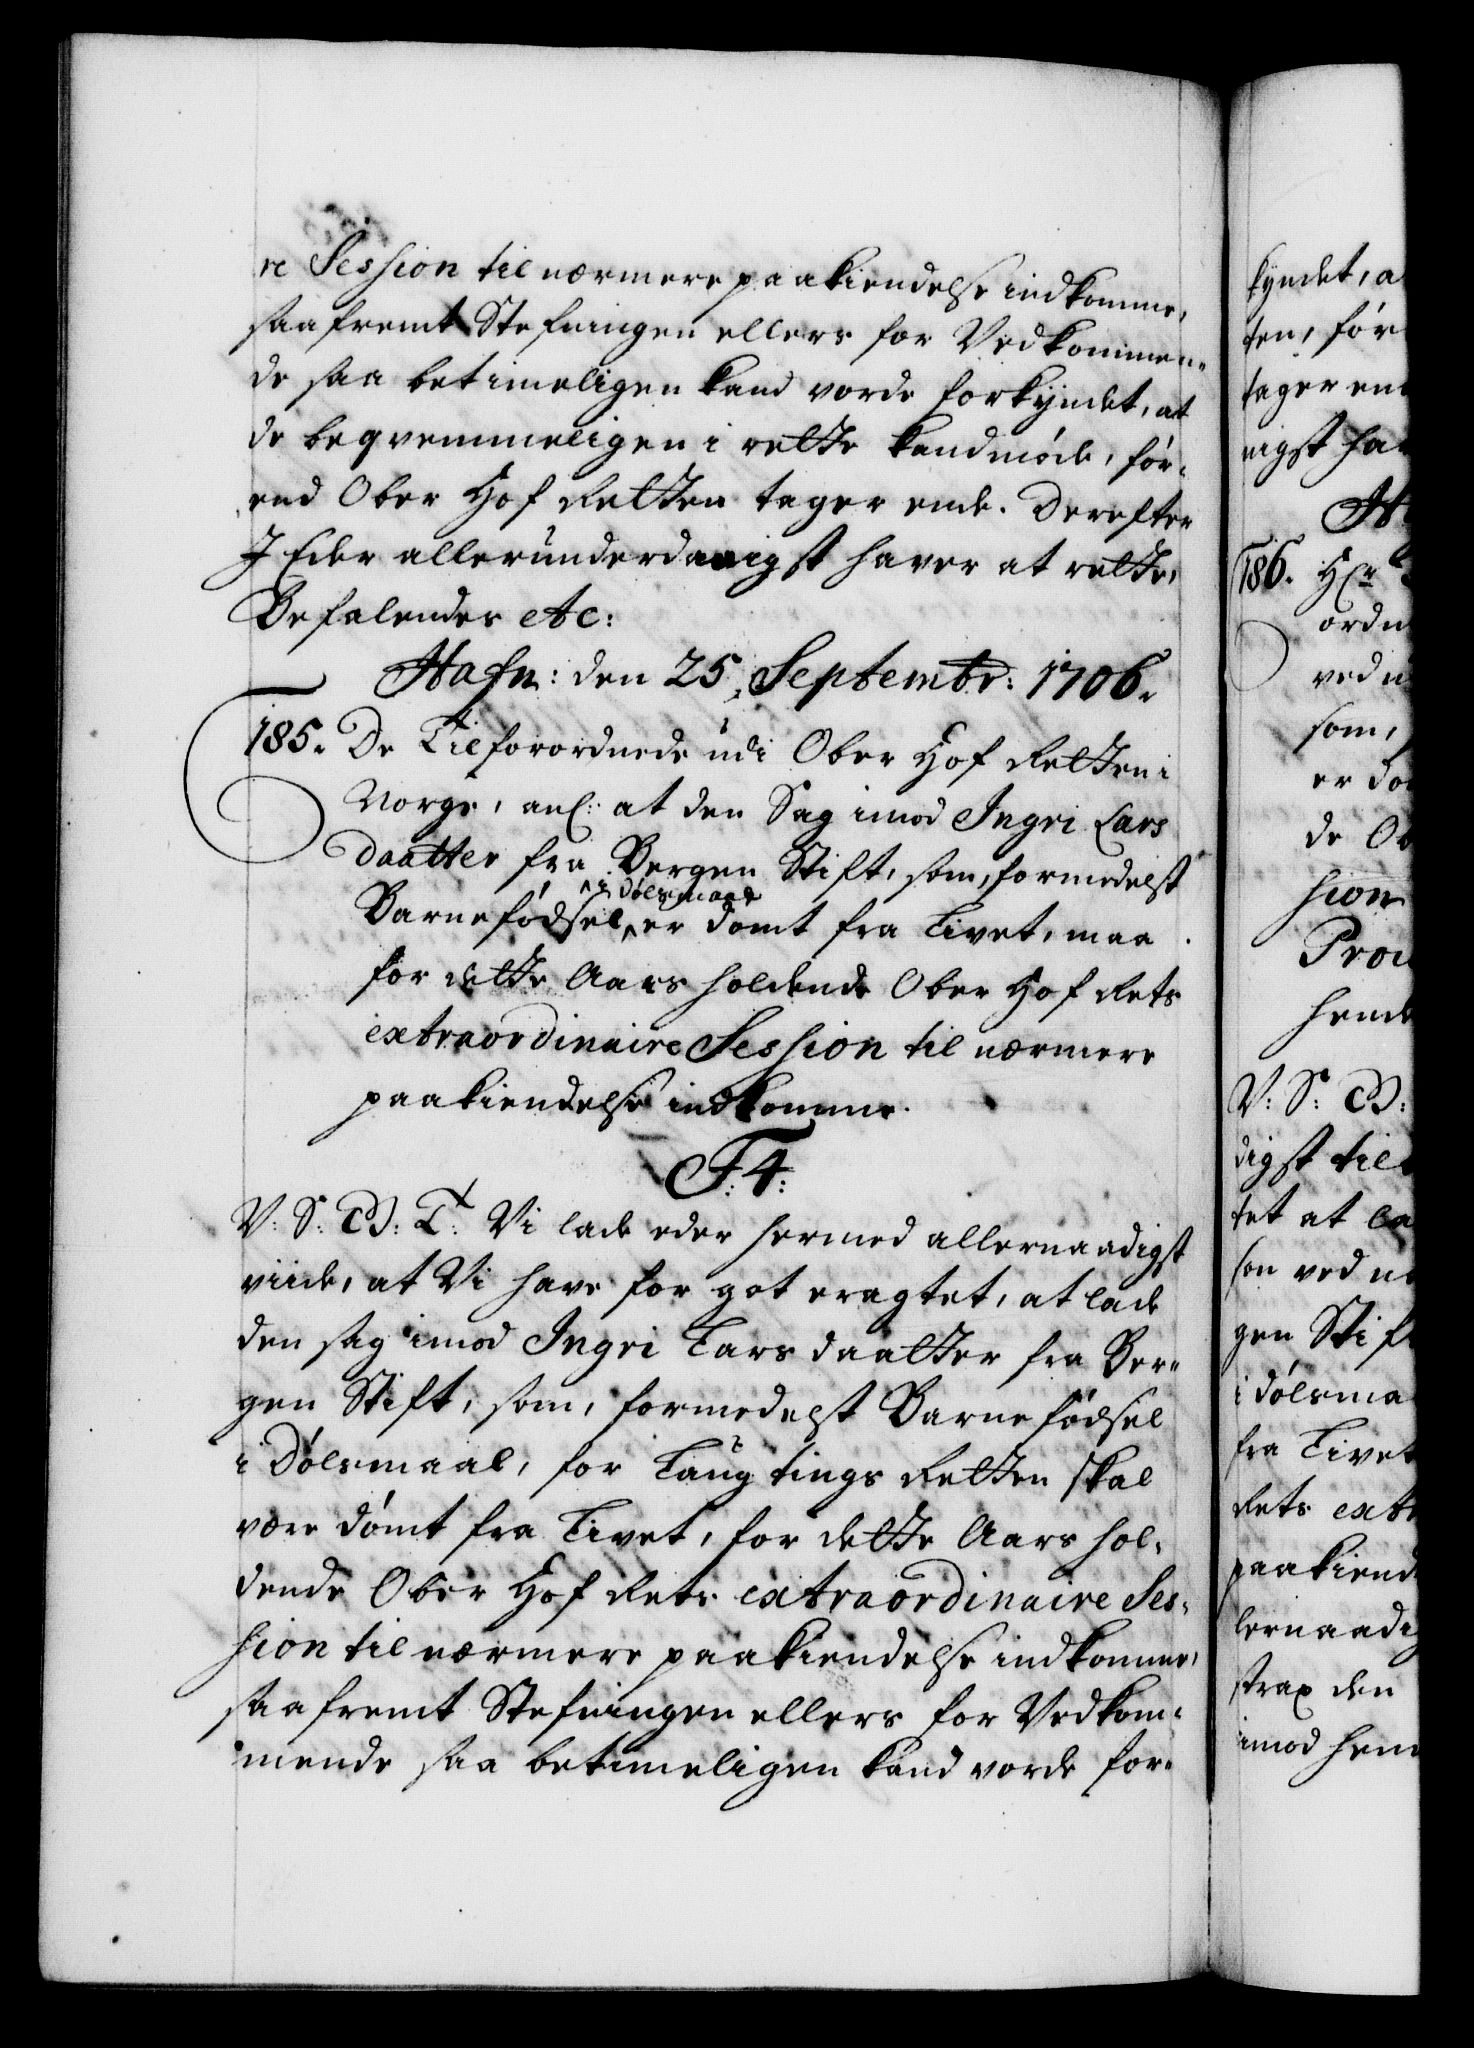 re Session til nærmere paakiendelse indkomme,
saafremt Stefningen ellers for Vedkommen-
de saa betimeligen kand vorde forkyndet, at
de beqvemmeligen i rette kand møde, før-
end Ober Hof Retten tager ende. Derefter
I Eder allerunderdanigst haver at rette,
Befalendes etc:
Hafn: den 25, Septembr: 1706.
185. De Tilforordnede udi Ober Hof Retten i
Norge, anl: at den Sag imod Ingri Lars
daatter fra Bergen Stift, som, formedelst
i Dølsmaal
Barnefødsel er dømt fra Livet, maa
for dette Aars holdende Ober Hof Rets
extraordinaire Session til nærmere
paakiendelse indkomme.
F: 4:
V: S: G: T: Vi lade eder hermed allernaadigst
viide, at Vi have for got eragtet, at lade
den sag imod Ingri Lars daatter fra Ber-
gen Stift, som, formedelst Barnefødsel
i Dølsmaal, for Laugtings Retten skal
være dømt fra Livet, for dette Aars hol-
dende Ober Hof Rets extraordinaire Ses-
sion til nærmere paakiendelse indkomme,
saafremt Stefningen ellers for Vedkom-
mende saa betimeligen kand vorde for-
kyndet, a
ten, før
tager en
nigst ha
H
186. Hr
ordn
ved n
som,
er dø
de Ob
sion
Pro
hende
V: S: G:
digst til
tet at la
søn ved n
gen Stif
i dølsma
fra Livet
Rets extr
paakiend
lernaadig
strax den
imod hen